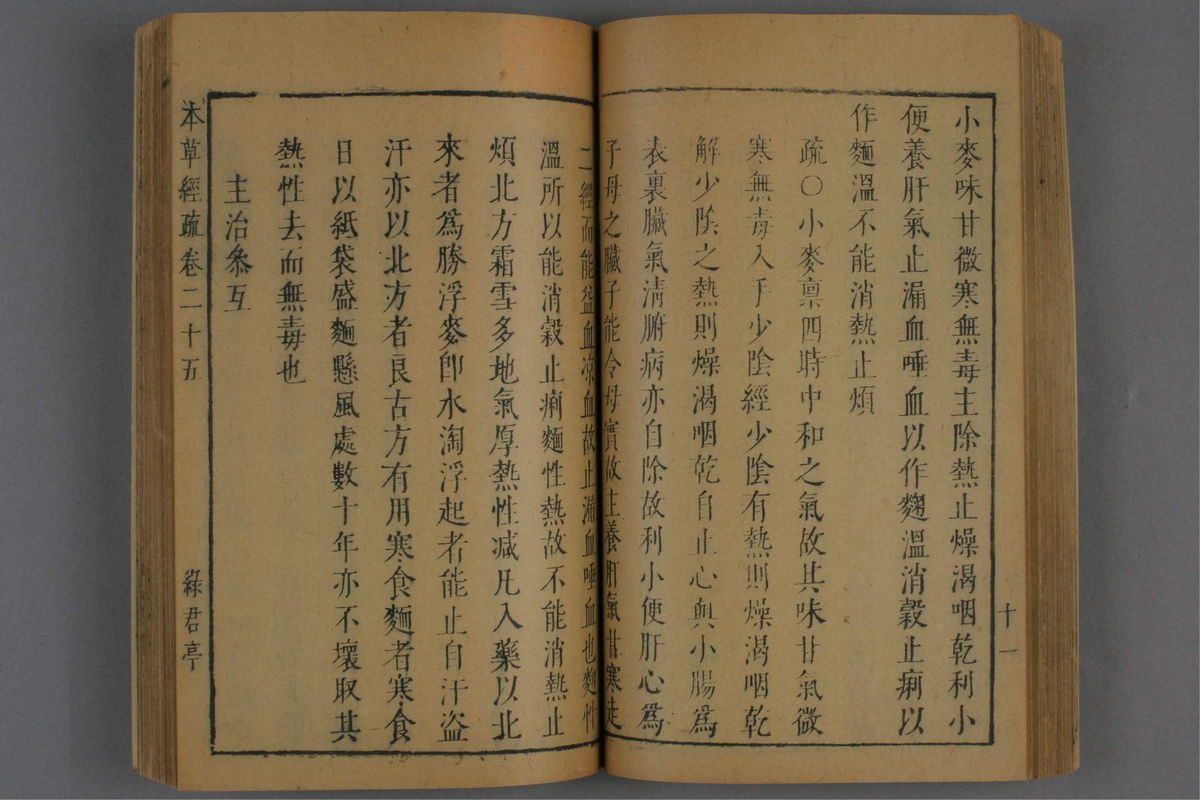 小麥味甘微寒無毒主除熱止燥渴咽乾利小
便養肝氣止漏血唾血以作麴溫消穀止痢以
作麵溫不能消熱止煩
疏〇小麥禀四時中和之氣故其味甘氣微
寒無毒入手少陰經少陰有熱則燥渴咽乾
解少陰之熱則燥渴咽乾自止心與小腸爲
表裏臟氣清腑病亦自除故利小便肝心爲
子母之臟子能令母實故主養肝氣甘寒走
二經而能益血凉血故止漏血唾血也麴性
溫所以能消穀止痢麵性熱故不能消熱止
煩北方霜雪多地氣厚熱性减凡入藥以北
來者爲勝浮麥卽水淘浮起者能止自汗盜
汗亦以北方者良古方有用寒食麵者寒食
日以紙袋盛麵懸風處數十年亦不壞取其
熱性去而無毒也
主治叅互
十一
本草經疏卷二十五
綠君亭